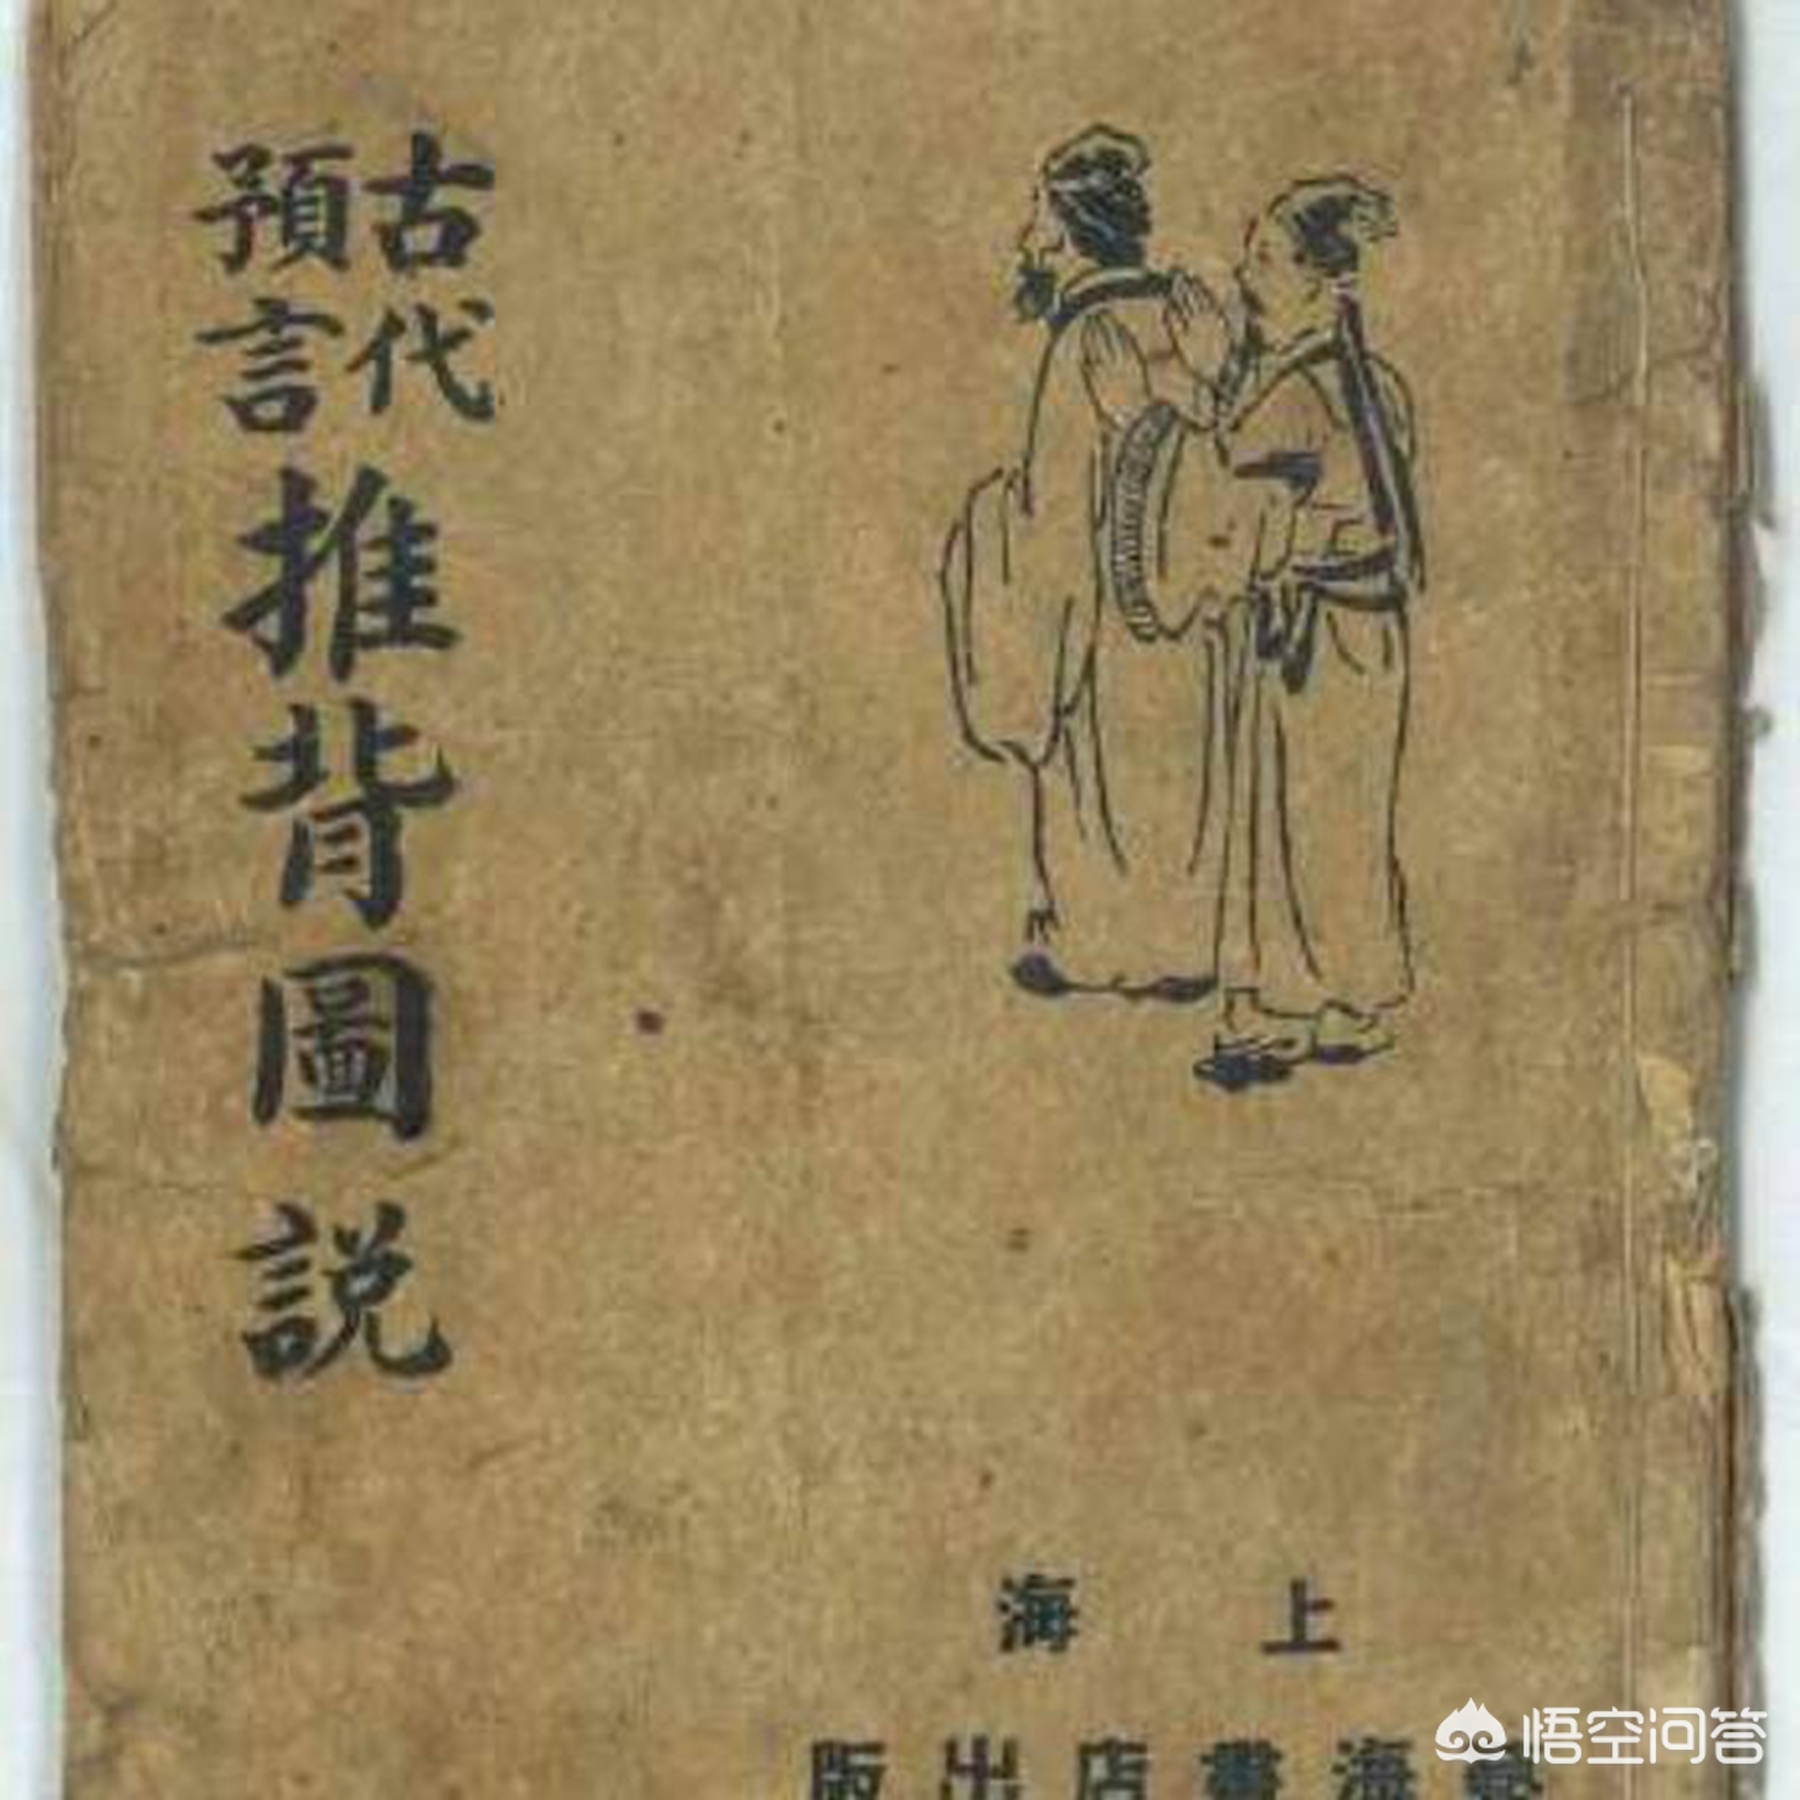 古代
預言
推背圖説
上海
海書店出版
悟空问答